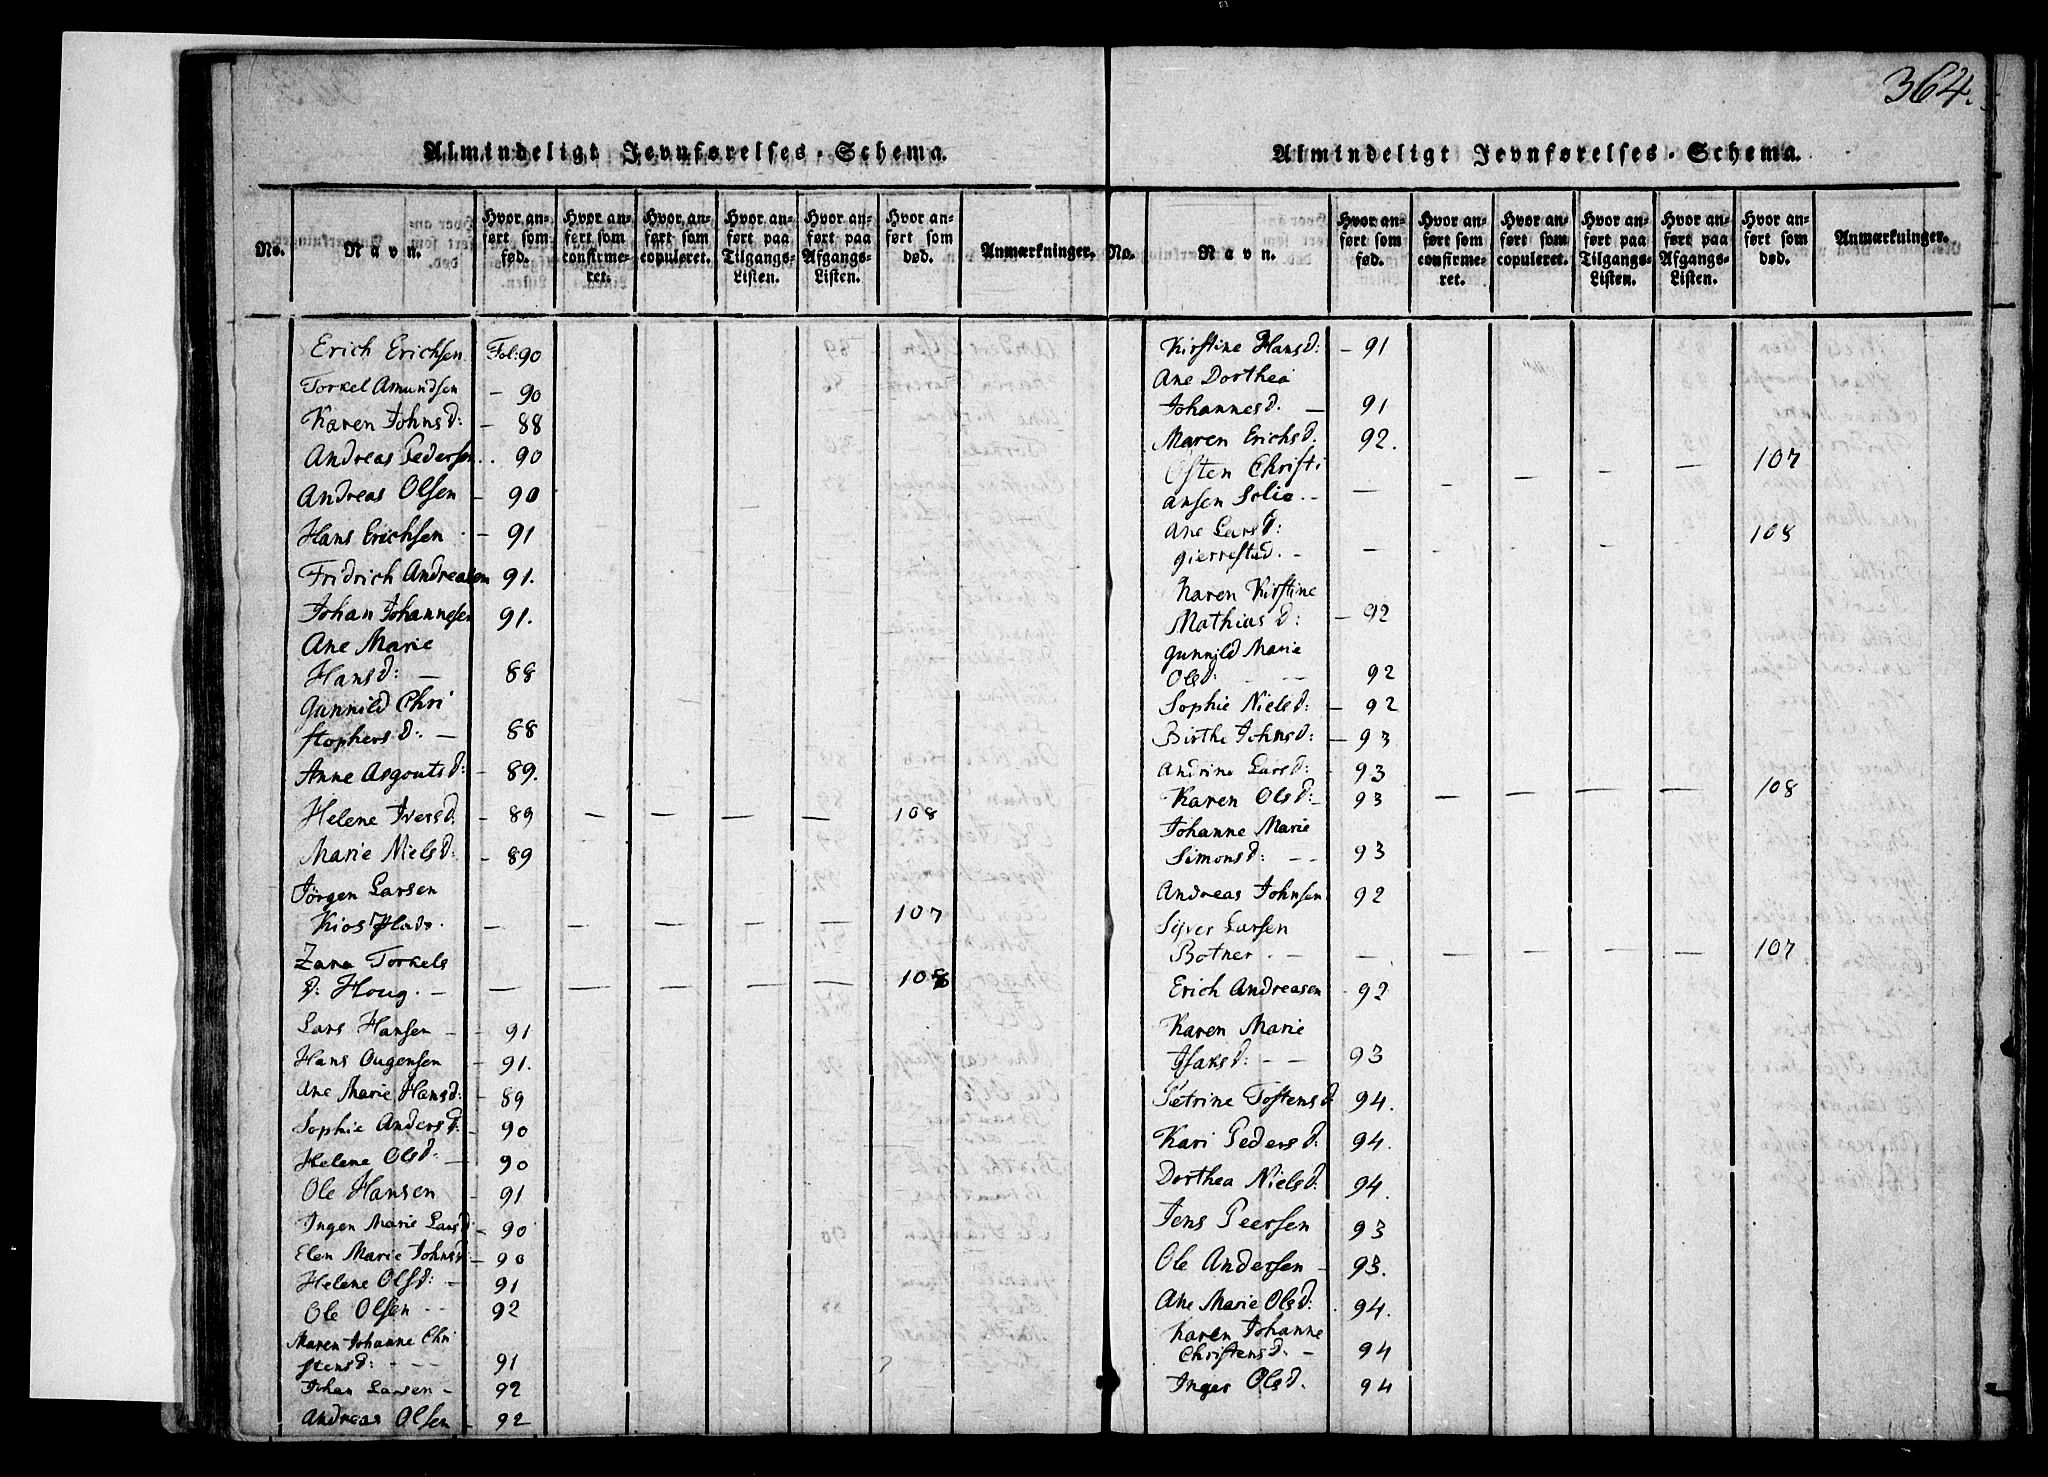 364.
Almindeligt Jevnførelses-Schema.
No. Navn. Hvor anført som fød. Hvor anført som confirmeret. Hvor anført som copuleret. Hvor anført paa Tilgangs-Listen. Hvor anført paa Afgangs-Listen. Hvor anført som død. Anmærkninger.
Erich Erichsen Fol: 90
Torkel Amundsen — 90
Karen Johnsd: — 88
Andreas Pedersen . . 90
Andreas Olsen — 90
Hans Erichsen — 91
Fridrich Andreasen 91.
Johan Johannesen 91.
Ane Marie
Hansd: — 88
Gunnild Chri
stophersd: — 88
Anne Asgoutsd: — 89.
Helene Iversd: — 89 — — — — 108
Marie Nielsd: — 89
Jörgen Larsen
Kios — — — — — 107
Zara Torkels
d: Houg. — — — — — — 108
Lars Hansen — — 91
Hans Ougensen — 91.
Ane Marie Hansd: — 89
Sophie Andersd: — 90
Helene Olsd: — 90
Ole Hansen — 91
Ingen Marie Larsd: — 90
Elen Marie Johnsd: — 90
Helene Olsd: — 91
Ole Olsen - - 92
Maren Johanne Chri
stensd: - - - 91
Johan Larsen — 92
Andreas Olsen — 92
Almindeligt Jevnførelses-Schema.
No. Navn. Hvor anført som fød. Hvor anført som confirmeret. Hvor anført som copuleret. Hvor anført paa Tilgangs-Listen. Hvor anført paa Afgangs-Listen. Hvor anført som død. Anmærkninger.
Kirstine Hansd: — 91
Ane Dorthea
Johannesd. — 91
Maren Erichsd. 92.
Osten Christi
ansen Solie. — — — — — — 107
Ane Larsd:
Gierrestad. — — — — — 108
Karen Kirstine
Mathiasd: — 92
Gunnild Marie
Olsd: — — 92
Sophie Nielsd: — 92
Birthe Johnsd: — 93
Andrine Larsd: - 93
Karen Olsd: — 93 — — — — 108
Johanne Marie
Simonsd: — — 93
Andreas Johnsen 92
Syver Larsen
Botner. — — — — — — 107
Erich Andreasen - 92
Karen Marie
Isaksd: — — 93
Petrine Tostensd 94.
Kari Pedersd: 94.
Dorthea Nielsd: 94.
Jens Peersen 93
Ole Andersen - 93.
Ane Marie Olsd: . 94.
Karen Johanne
Christensd. — 94
Inger Olsd. 94